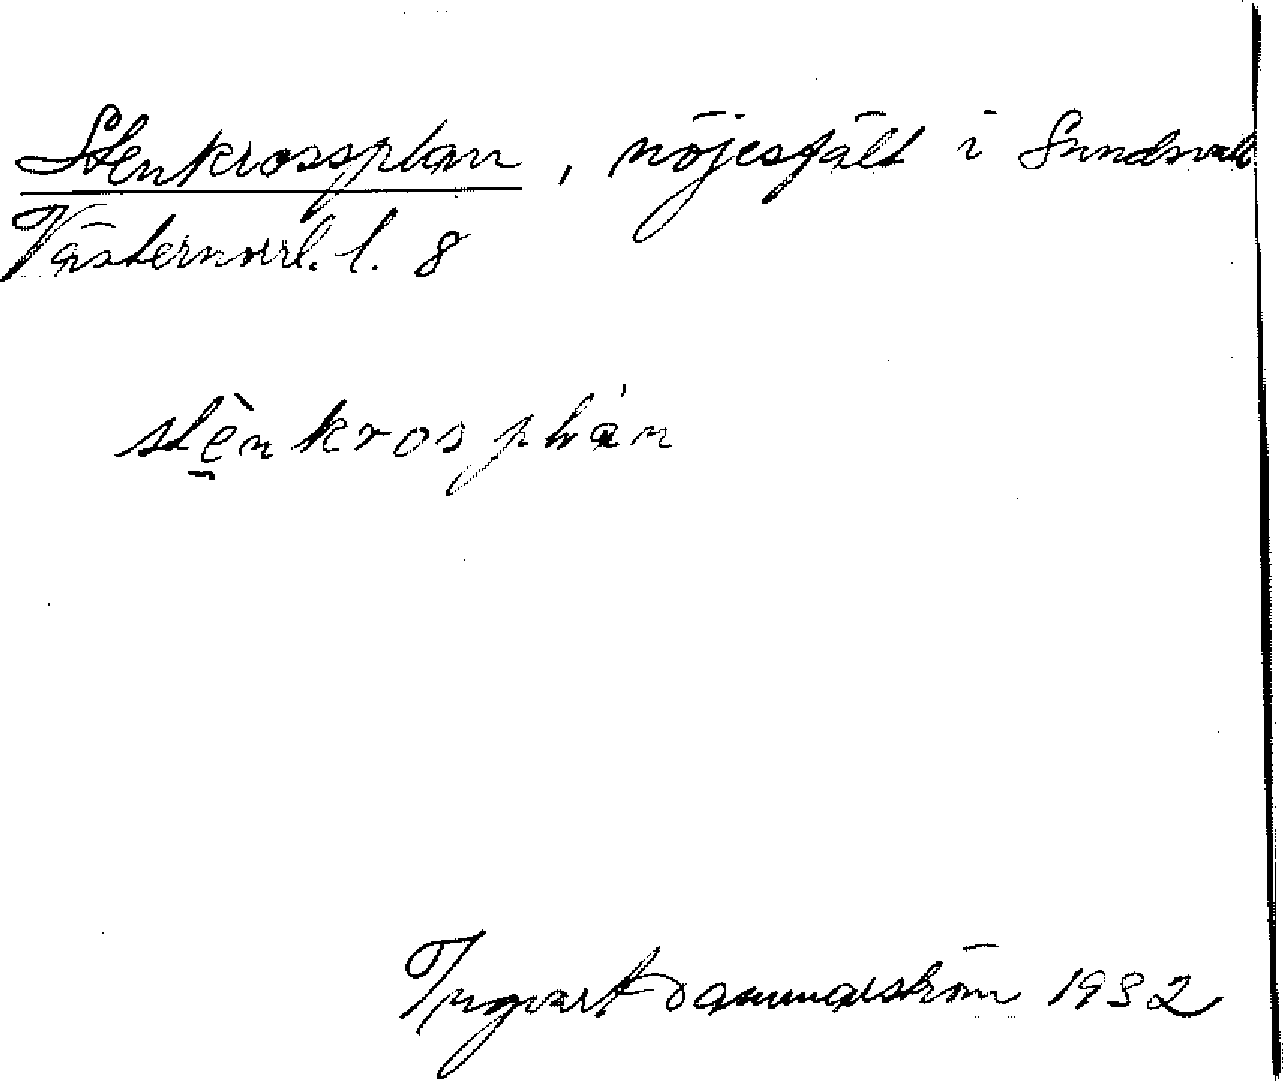 Stenkrossplan, nöjesfält i Sundsvall
Västernorrl. l. 8
stè̱nkrosplȧn
Ingvart Dammarström 1932